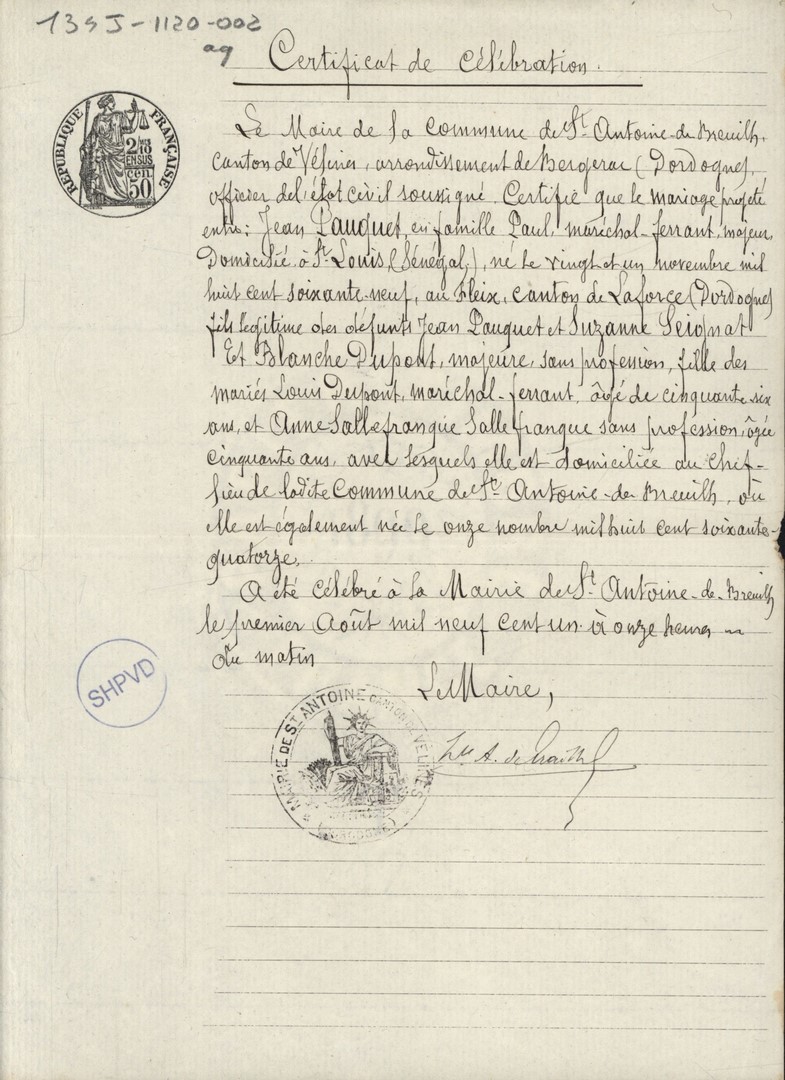 134J-1120-002
ag
Certificat de célébration.
RÉPUBLIQUE FRANÇAISE
2/10
EN SUS
CEN.
50
Le Maire de la Commune de St Antoine-de-Breuilh,
canton de Vélines, arrondissement de Bergerac (Dordogne),
officier de l'état civil soussigné. Certifie que le mariage projeté
entre: Jean Pauquet, en famille Paul, maréchal-ferrant, majeur,
Domicilié à St Louis, (Sénégal), né le vingt et un novembre mil
huit cent soixante-neuf, au Fleix, canton de Laforce (Dordogne)
fils légitime des défunts Jean Pauquet et Suzanne Seignat
Et Blanche Dupont, majeure, sans profession, fille des
mariés Louis Dupont, maréchal-ferrant, âgé de cinquante-six
ans, et Anne Sallefranque Sallefranque sans profession, âgée
cinquante ans, avec lesquels elle est domiciliée au Chef-
lieu de ladite Commune de St Antoine-de-Breuilh, où
elle est également née le onze nombre mil huit cent soixante-
quatorze.
A été célébré à la Mairie de St Antoine-de-Breuilh
le premier Août mil neuf cent un à onze heures
du matin
Le Maire,
SHPVD
MAIRIE DE ST ANTOINE CANTON DE VELINES
(DORDOGNE)